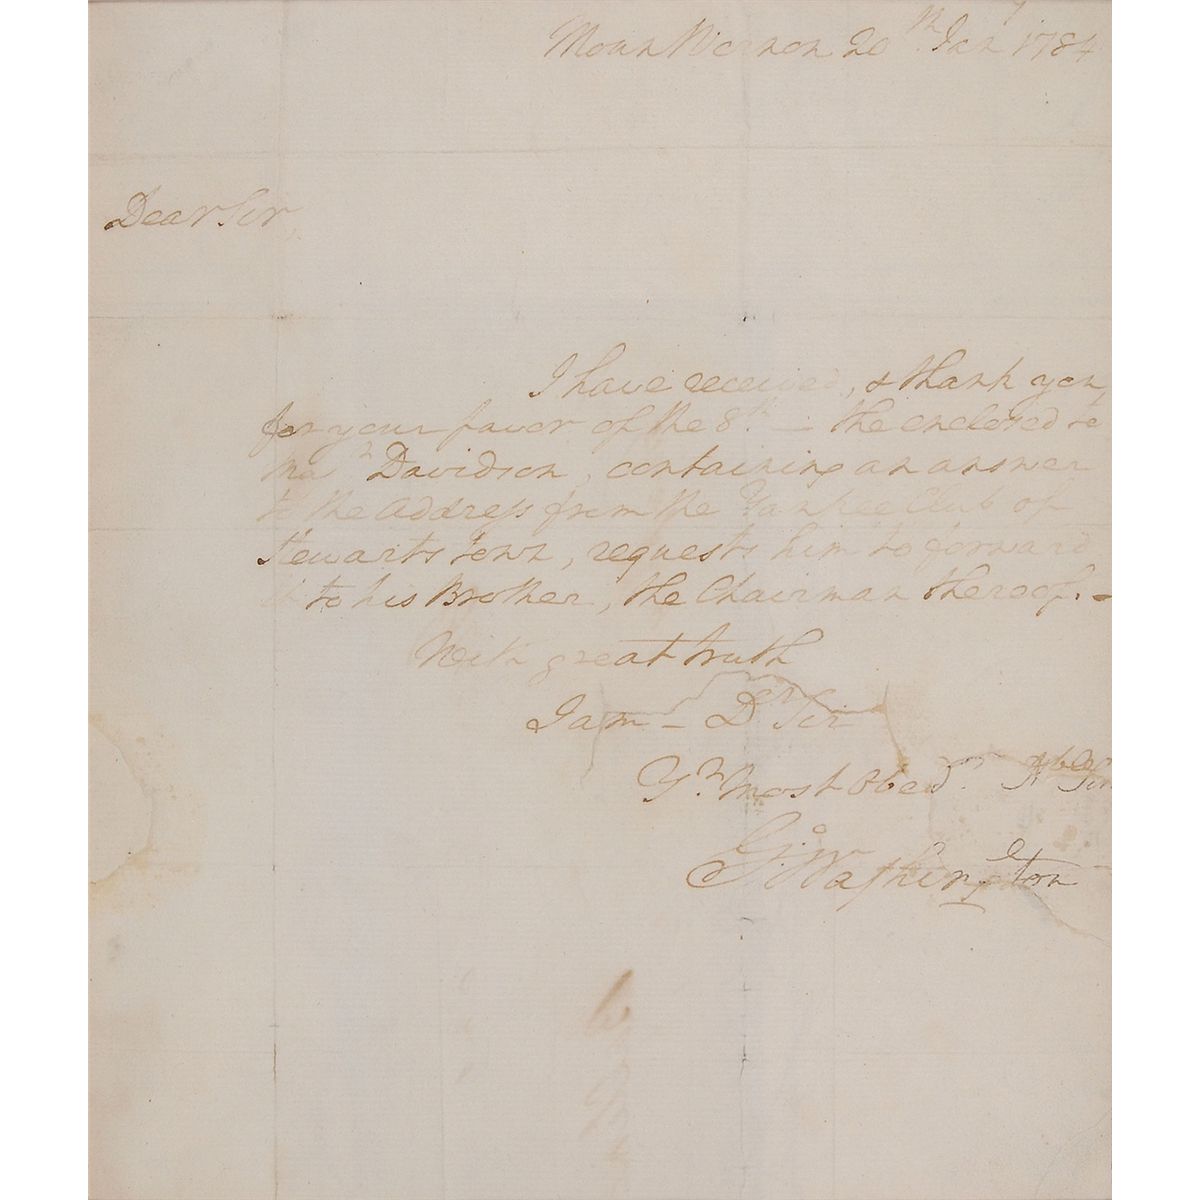 Mount Vernon 20th Jany 1784
Dear Sir,
I have received, & thank you
for your favor of the 8th — the enclosed to
Davidson, containing an answer
to the Address from the Yankee Club of
Stewarts Town, requests him to forward
it to his Brother, the Chairman thereof. —
With great truth
I am — Dr Sir
Yr. most Obedt Hble Ser
Go: Washington